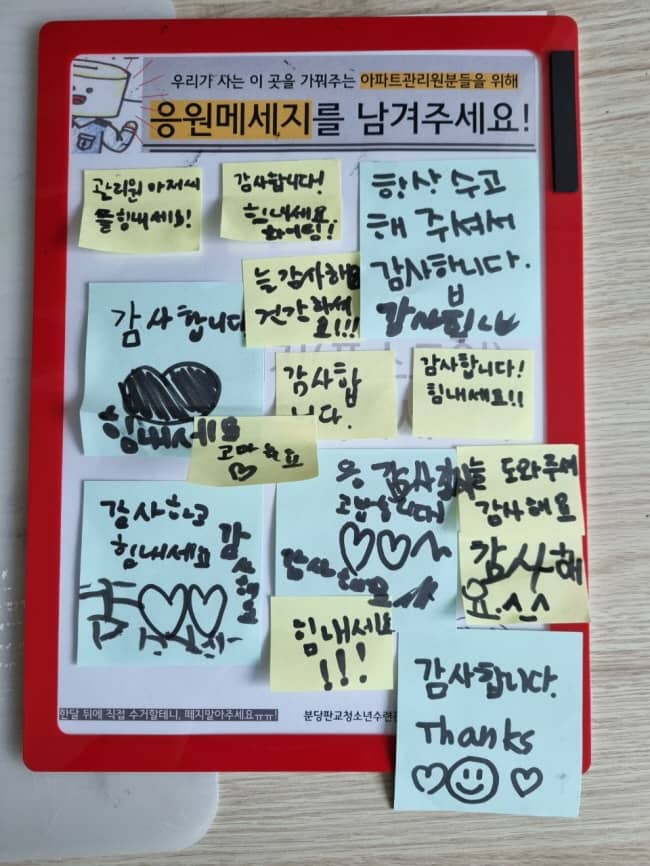 우리가 사는 이 곳을 가꿔주는 아파트관리원분들을 위해
응원메세지를 남겨주세요!
관리원 아저씨
들 힘내세요!
감사합니다!
힘내세요
화이팅!
항상 수고
해 주셔서
감사합니다.
늘 감사해요
건강하세
요!!!
감사합니다
힘내세요
감사합
니다.
감사합니다!
힘내세요!!
고마워요
감사하고
힘내세요
감사해요
고맙습니다!
늘 도와주셔
감사해요
감사해
요.^^
힘내세요
!!!
감사합니다.
Thanks
한달 뒤에 직접 수거할테니, 떼지말아주세요ㅠㅠ!
분당판교청소년수련관